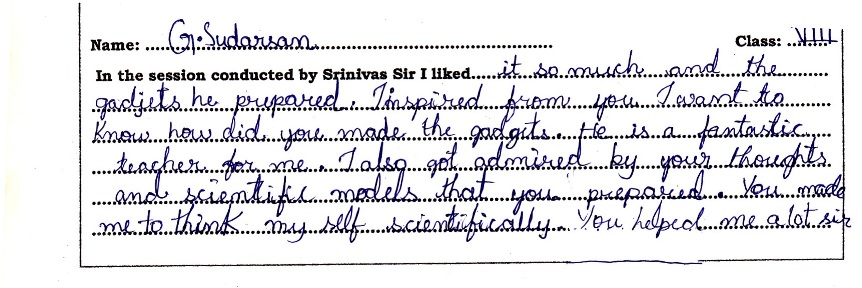 Name: ..... G. Sudarsan ..... Class: .. VIII
In the session conducted by Srinivas Sir I liked.... it so much and the
gadjets he prepared. I inspired from you I want to
Know how did you made the gadgits. He is a fantastic
teacher for me. I also got admired by your thoughts
and scientific models that you prepared. You made
me to think my self scientifically. You helped me a lot sir